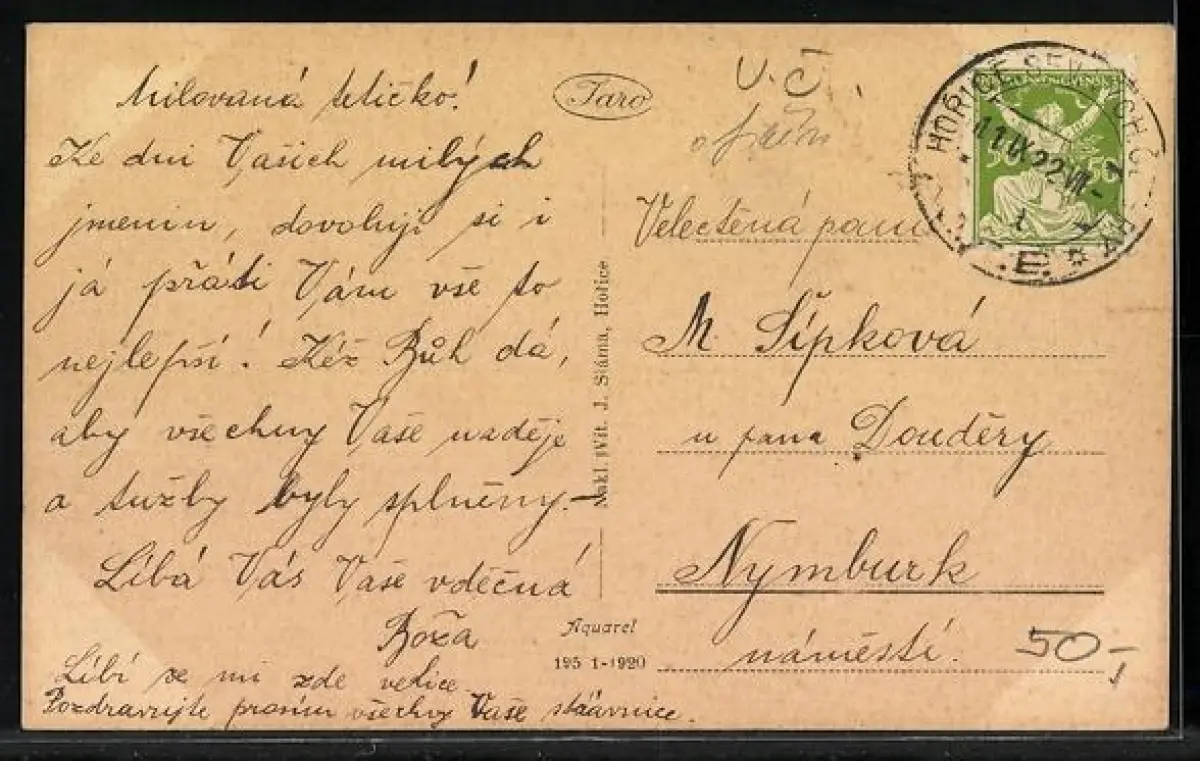 Milovaná tetičko!
Ke dni Vašich milých
jmenin, dovoluji si i
já přáti Vám vše to
nejlepší! Kéž Bůh dá,
aby všechny Vaše naděje
a tužby byly splněny.-
Líbá Vás Vaše vděčná
Boža
Líbí se mi zde velice.
Pozdravujte prosím všechny Vaše
Taro
Nakl. J. Sláma, Hořice
Aquarel
195 1-1920
V.Č.
HOŘICE
11 IX 22 VII
E.
50 50
Velectěná paní
M. Šípková
u pana Douděry
Nymburk
náměstí.
50,-